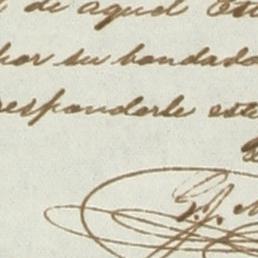 de aquel Est
por su bondado
responderle este
G. J. M